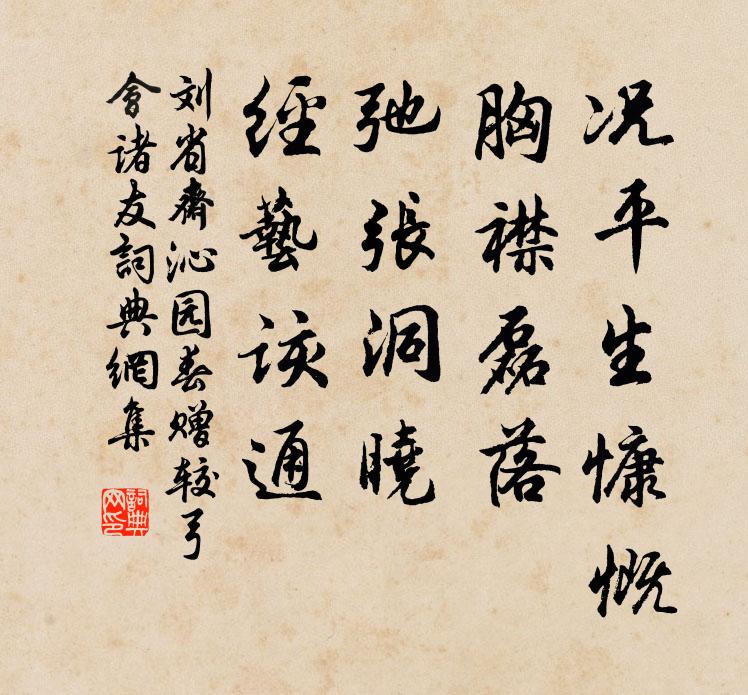 况平生慷慨
胸襟磊落
弛張洞曉
經藝该通
刘省齋沁园春赠较弓
會诸友詞典網集
詞典网印